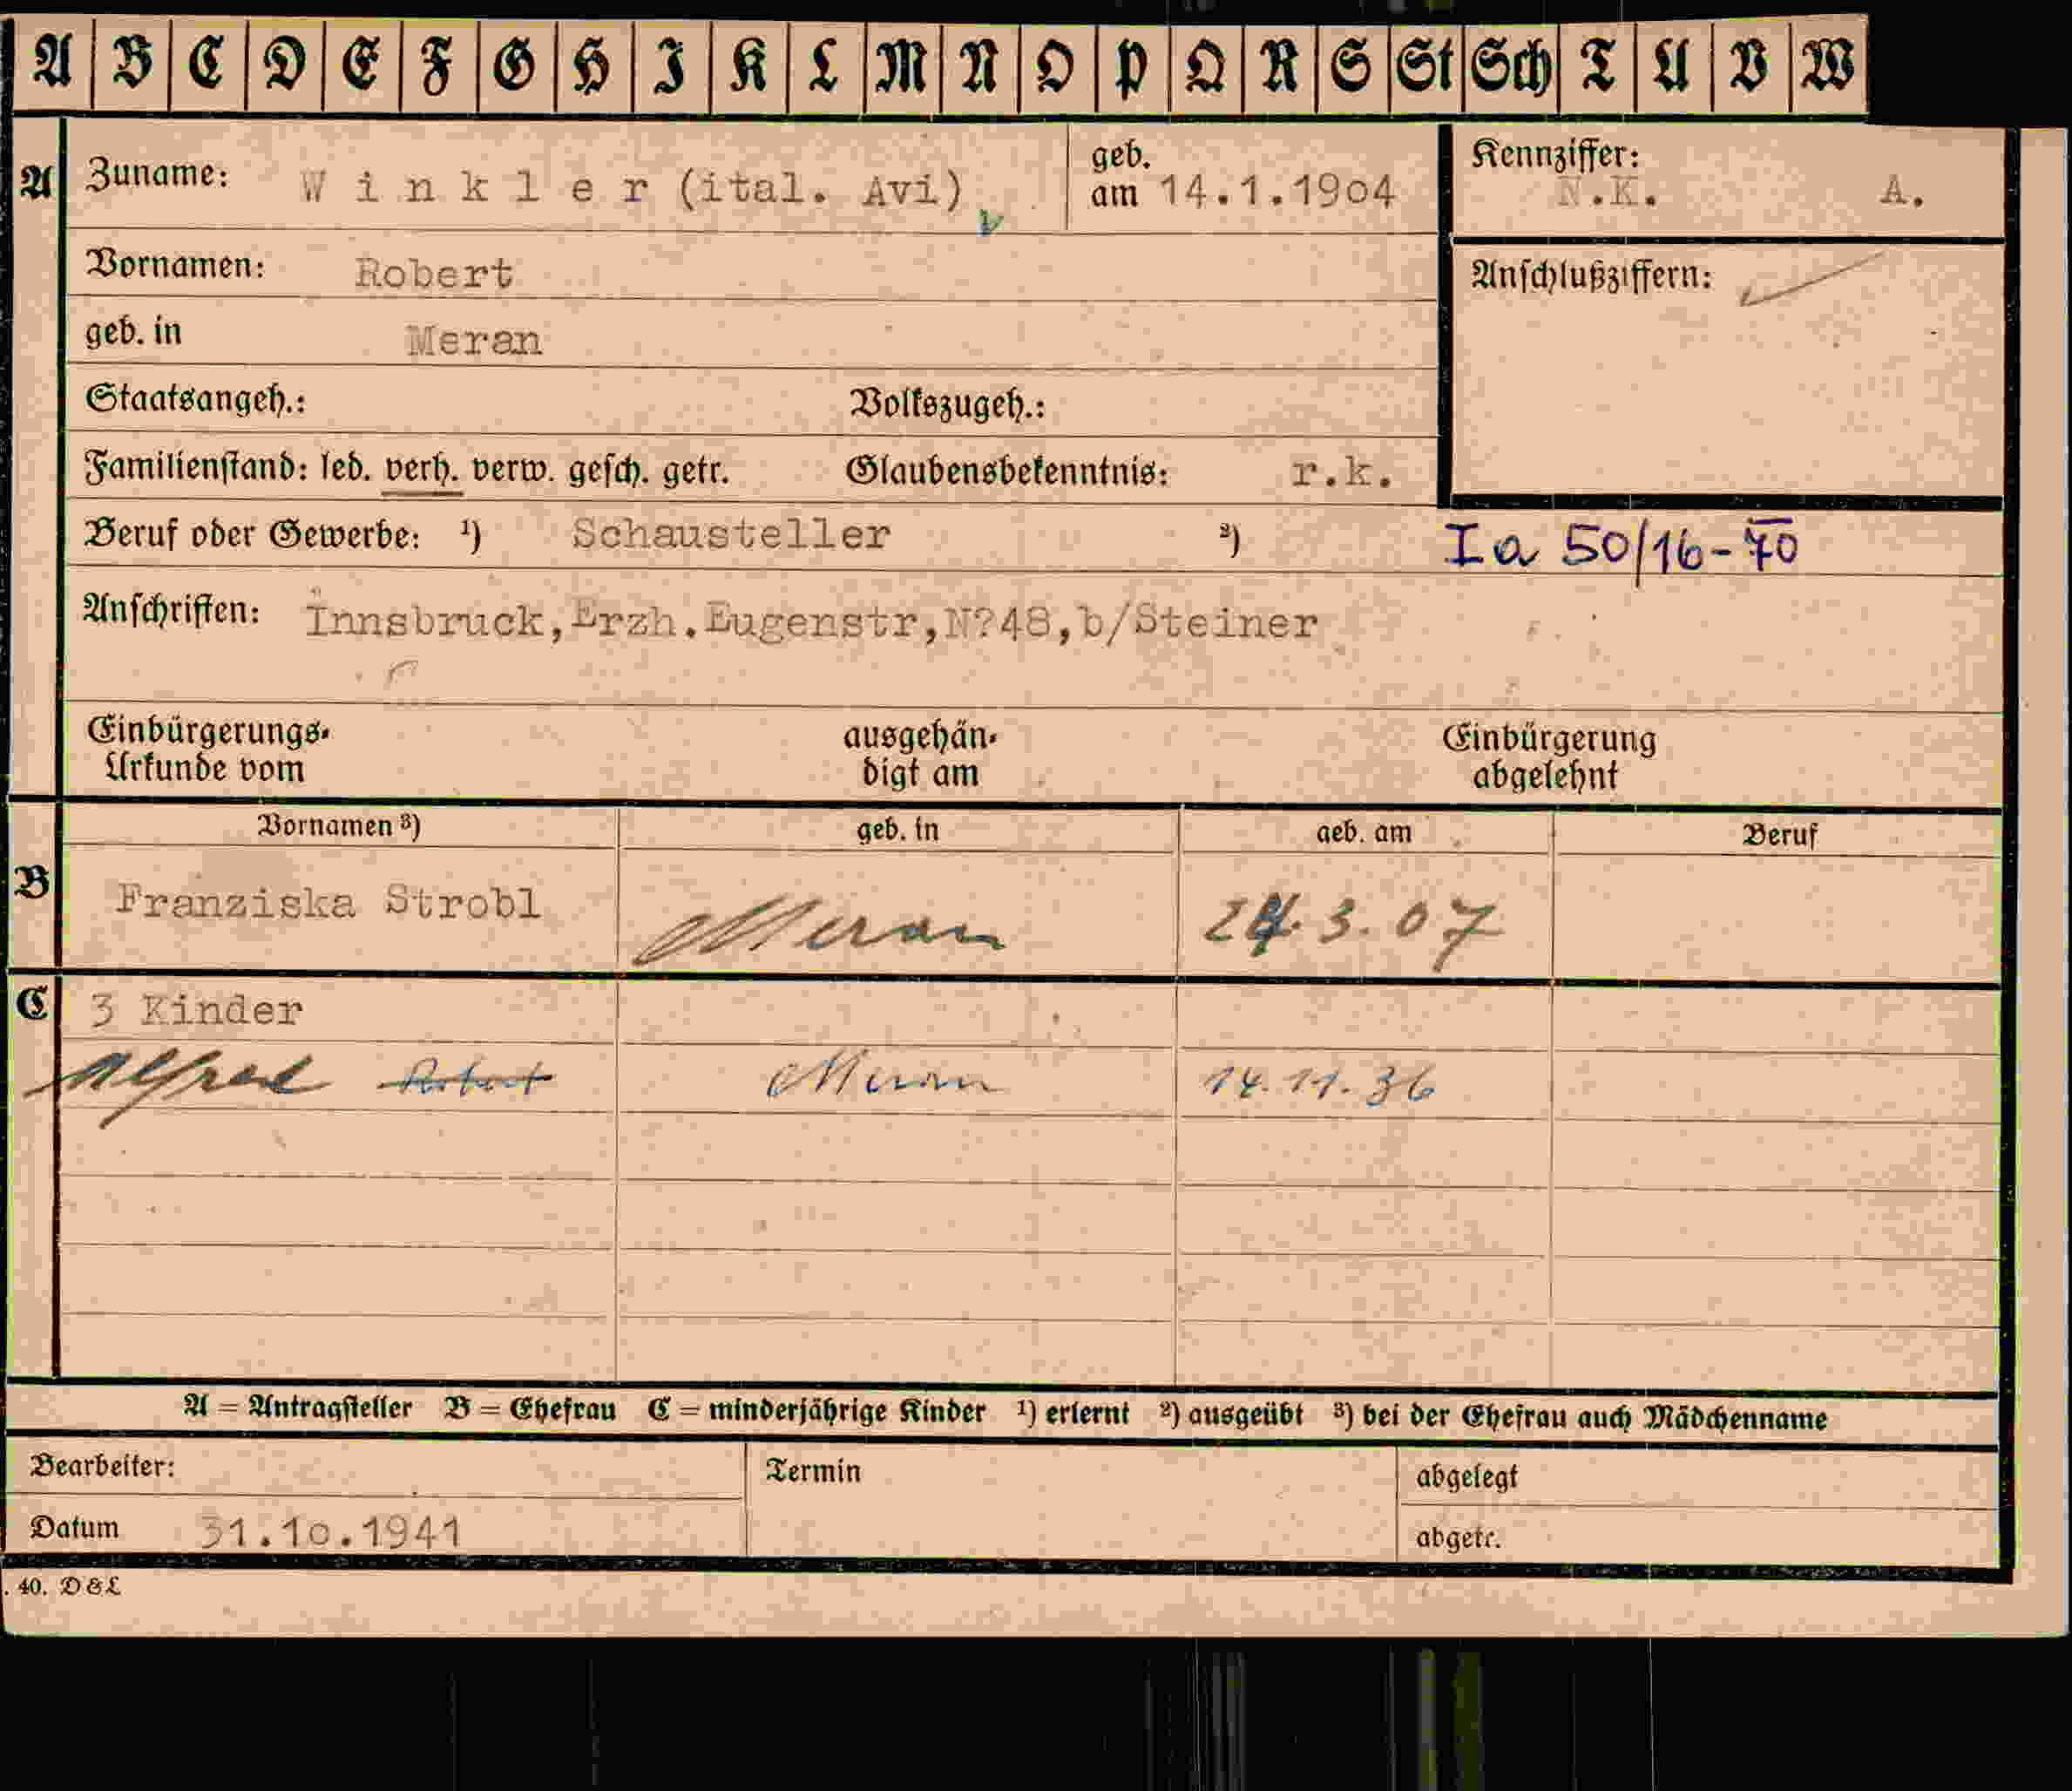 A B C D E F G H I K L M N O P Q R S St Sch T U V W
A Zuname: Winkler (ital. Avi) geb. am 14.1.1904 Kennziffer: N.K. A.
Vornamen: Robert Anschlußziffern:
geb. in Meran
Staatsangeh.: Volkszugeh.:
Familienstand: led. verh. verw. gesch. getr. Glaubensbekenntnis: r.k.
Beruf oder Gewerbe: ¹) Schausteller ²) Ia 50/16-70
Anschriften: Innsbruck,Erzh.Eugenstr,N?48,b/Steiner
Einbürgerungs- ausgehän- Einbürgerung
Urkunde vom digt am abgelehnt
Vornamen ³) geb. in geb. am Beruf
B Franziska Strobl Meran 24.3.07
C 3 Kinder
Alfred Robert Meran 14.11.36
A = Antragsteller B = Ehefrau C = minderjährige Kinder ¹) erlernt ²) ausgeübt ³) bei der Ehefrau auch Mädchenname
Bearbeiter: Termin abgelegt
Datum 31.10.1941 abgetr.
. 40. D & L